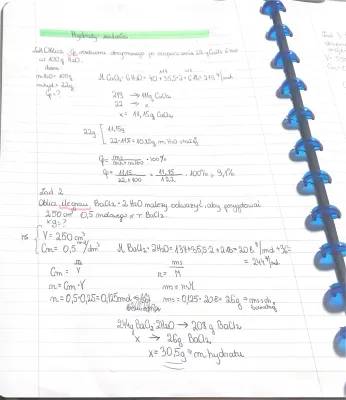 Hydraty - zadania
Zad. Oblicz Cp roztworu otrzymanego po rozpuszczeniu 22g CaCl2·6H2O
w 100g H2O.
dane
mH2O = 100g
mhyd = 22g
Cp = ?
M CaCl2·6H2O = 40+35,5·2+6·18 = 219 g/mol
219 → 111g CaCl2
22 → x
x = 11,15g CaCl2
22g [ 11,15g
22-11,15 = 10,85g m H2O
Cp = ms/ · 100%
Cp = 11,15/22+100 = 11,15/122 · 100% = 9,1%
Zad 2
Oblicz, ile gram BaCl2·2H2O należy odważyć, aby przygotować
250cm³ 0,5 molowego r-r BaCl2.
V = 250cm³
Cm = 0,5 mol/dm³
M BaCl2·2H2O = 137+35,5·2+2·18 = 208 g/mol + 36 =
= 244 g/mol
Cm = n/V
n = ms/M
n = Cm·V
ms = n·M
n = 0,5·0,25 = 0,125mol
ms = 0,125·208 = 26g = ms
244g BaCl2·2H2O → 208g BaCl2
x → 26g BaCl2
x = 30,5g = m hydratu